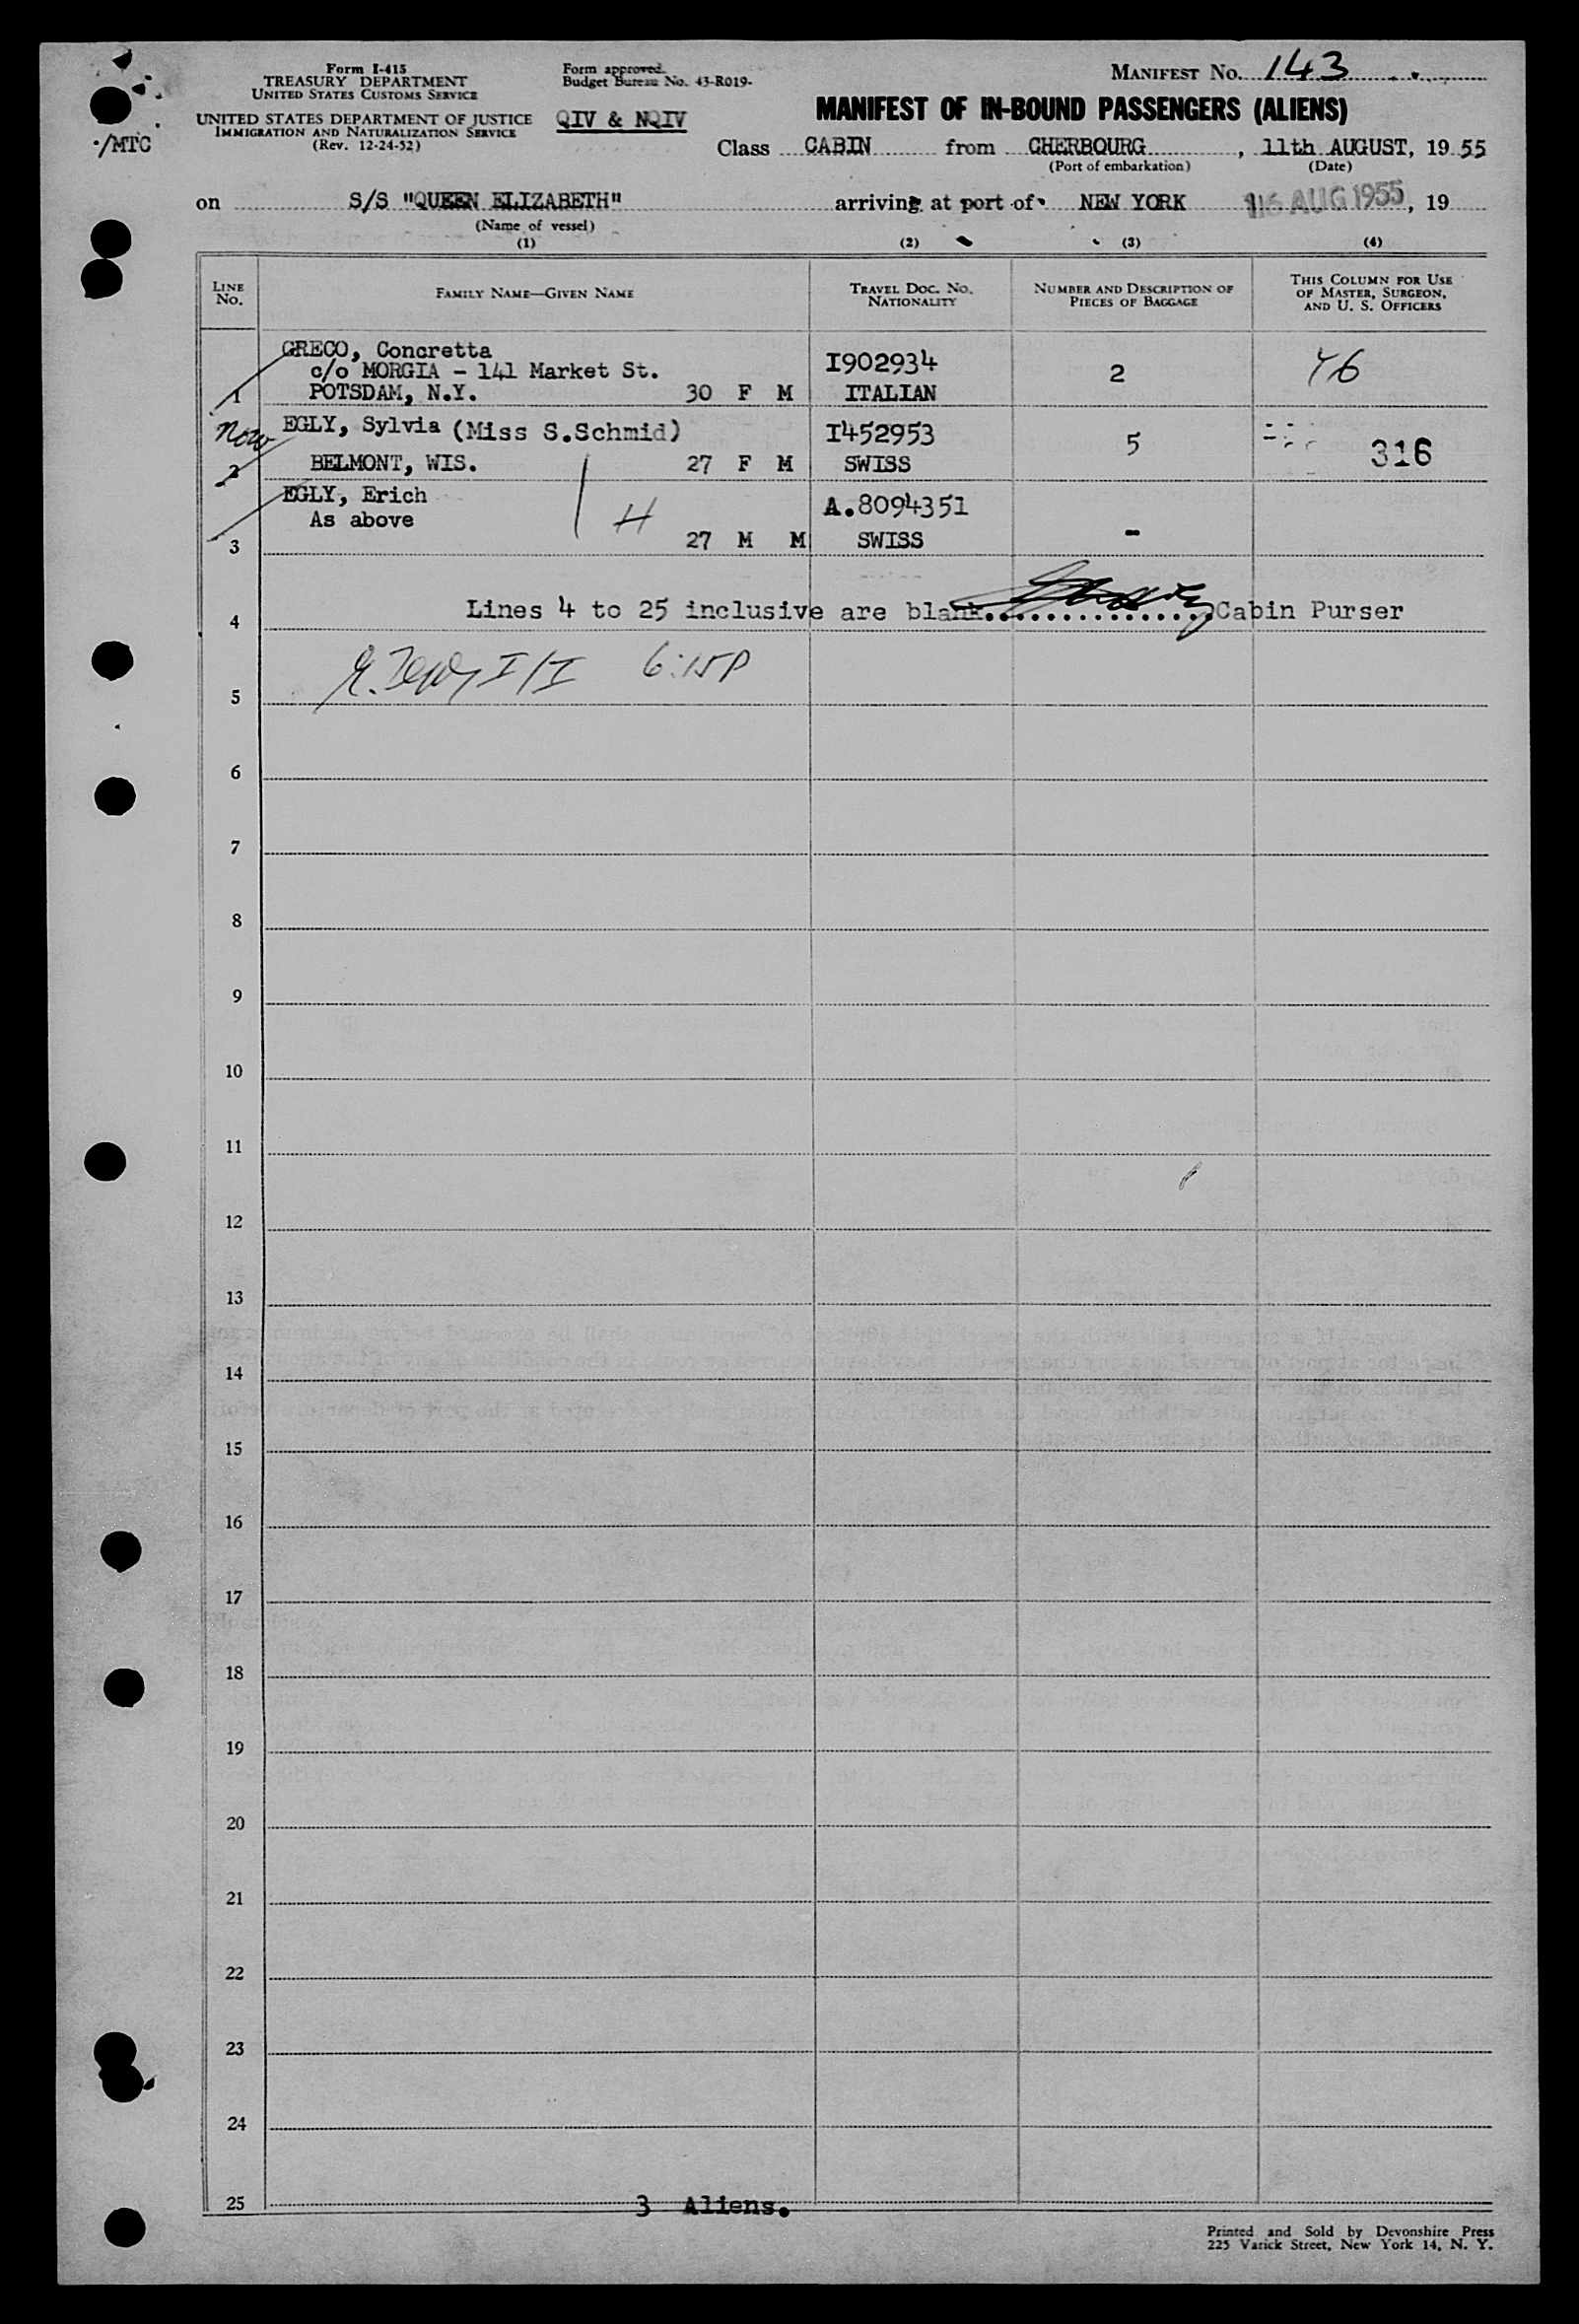 Form I-415
TREASURY DEPARTMENT
UNITED STATES CUSTOMS SERVICE
UNITED STATES DEPARTMENT OF JUSTICE
IMMIGRATION AND NATURALIZATION SERVICE
(Rev. 12-24-52)
Form approved.
Budget Bureau No. 43-R019-
QIV & NQIV
/MTC
MANIFEST No. 143
MANIFEST OF IN-BOUND PASSENGERS (ALIENS)
Class CABIN from CHERBOURG, 11th AUGUST, 19 55
(Port of embarkation) (Date)
on S/S "QUEEN ELIZABETH" arriving at port of NEW YORK 16 AUG 1955, 19
(Name of vessel)
(1) (2) (3) (4)
LINE No. FAMILY NAME—GIVEN NAME TRAVEL DOC. No. NATIONALITY NUMBER AND DESCRIPTION OF PIECES OF BAGGAGE THIS COLUMN FOR USE OF MASTER, SURGEON, AND U. S. OFFICERS
GRECO, Concretta
c/o MORGIA - 141 Market St. I902934 2 46
1 POTSDAM, N.Y. 30 F M ITALIAN
now EGLY, Sylvia (Miss S.Schmid) I452953 5 316
2 BELMONT, WIS. 27 F M SWISS
EGLY, Erich
As above H A.8094351
3 27 M M SWISS -
4 Lines 4 to 25 inclusive are blank............... Cabin Purser
I/I 6:15P
5
6
7
8
9
10
11
12
13
14
15
16
17
18
19
20
21
22
23
24
25 3 Aliens.
Printed and Sold by Devonshire Press
225 Varick Street, New York 14, N. Y.